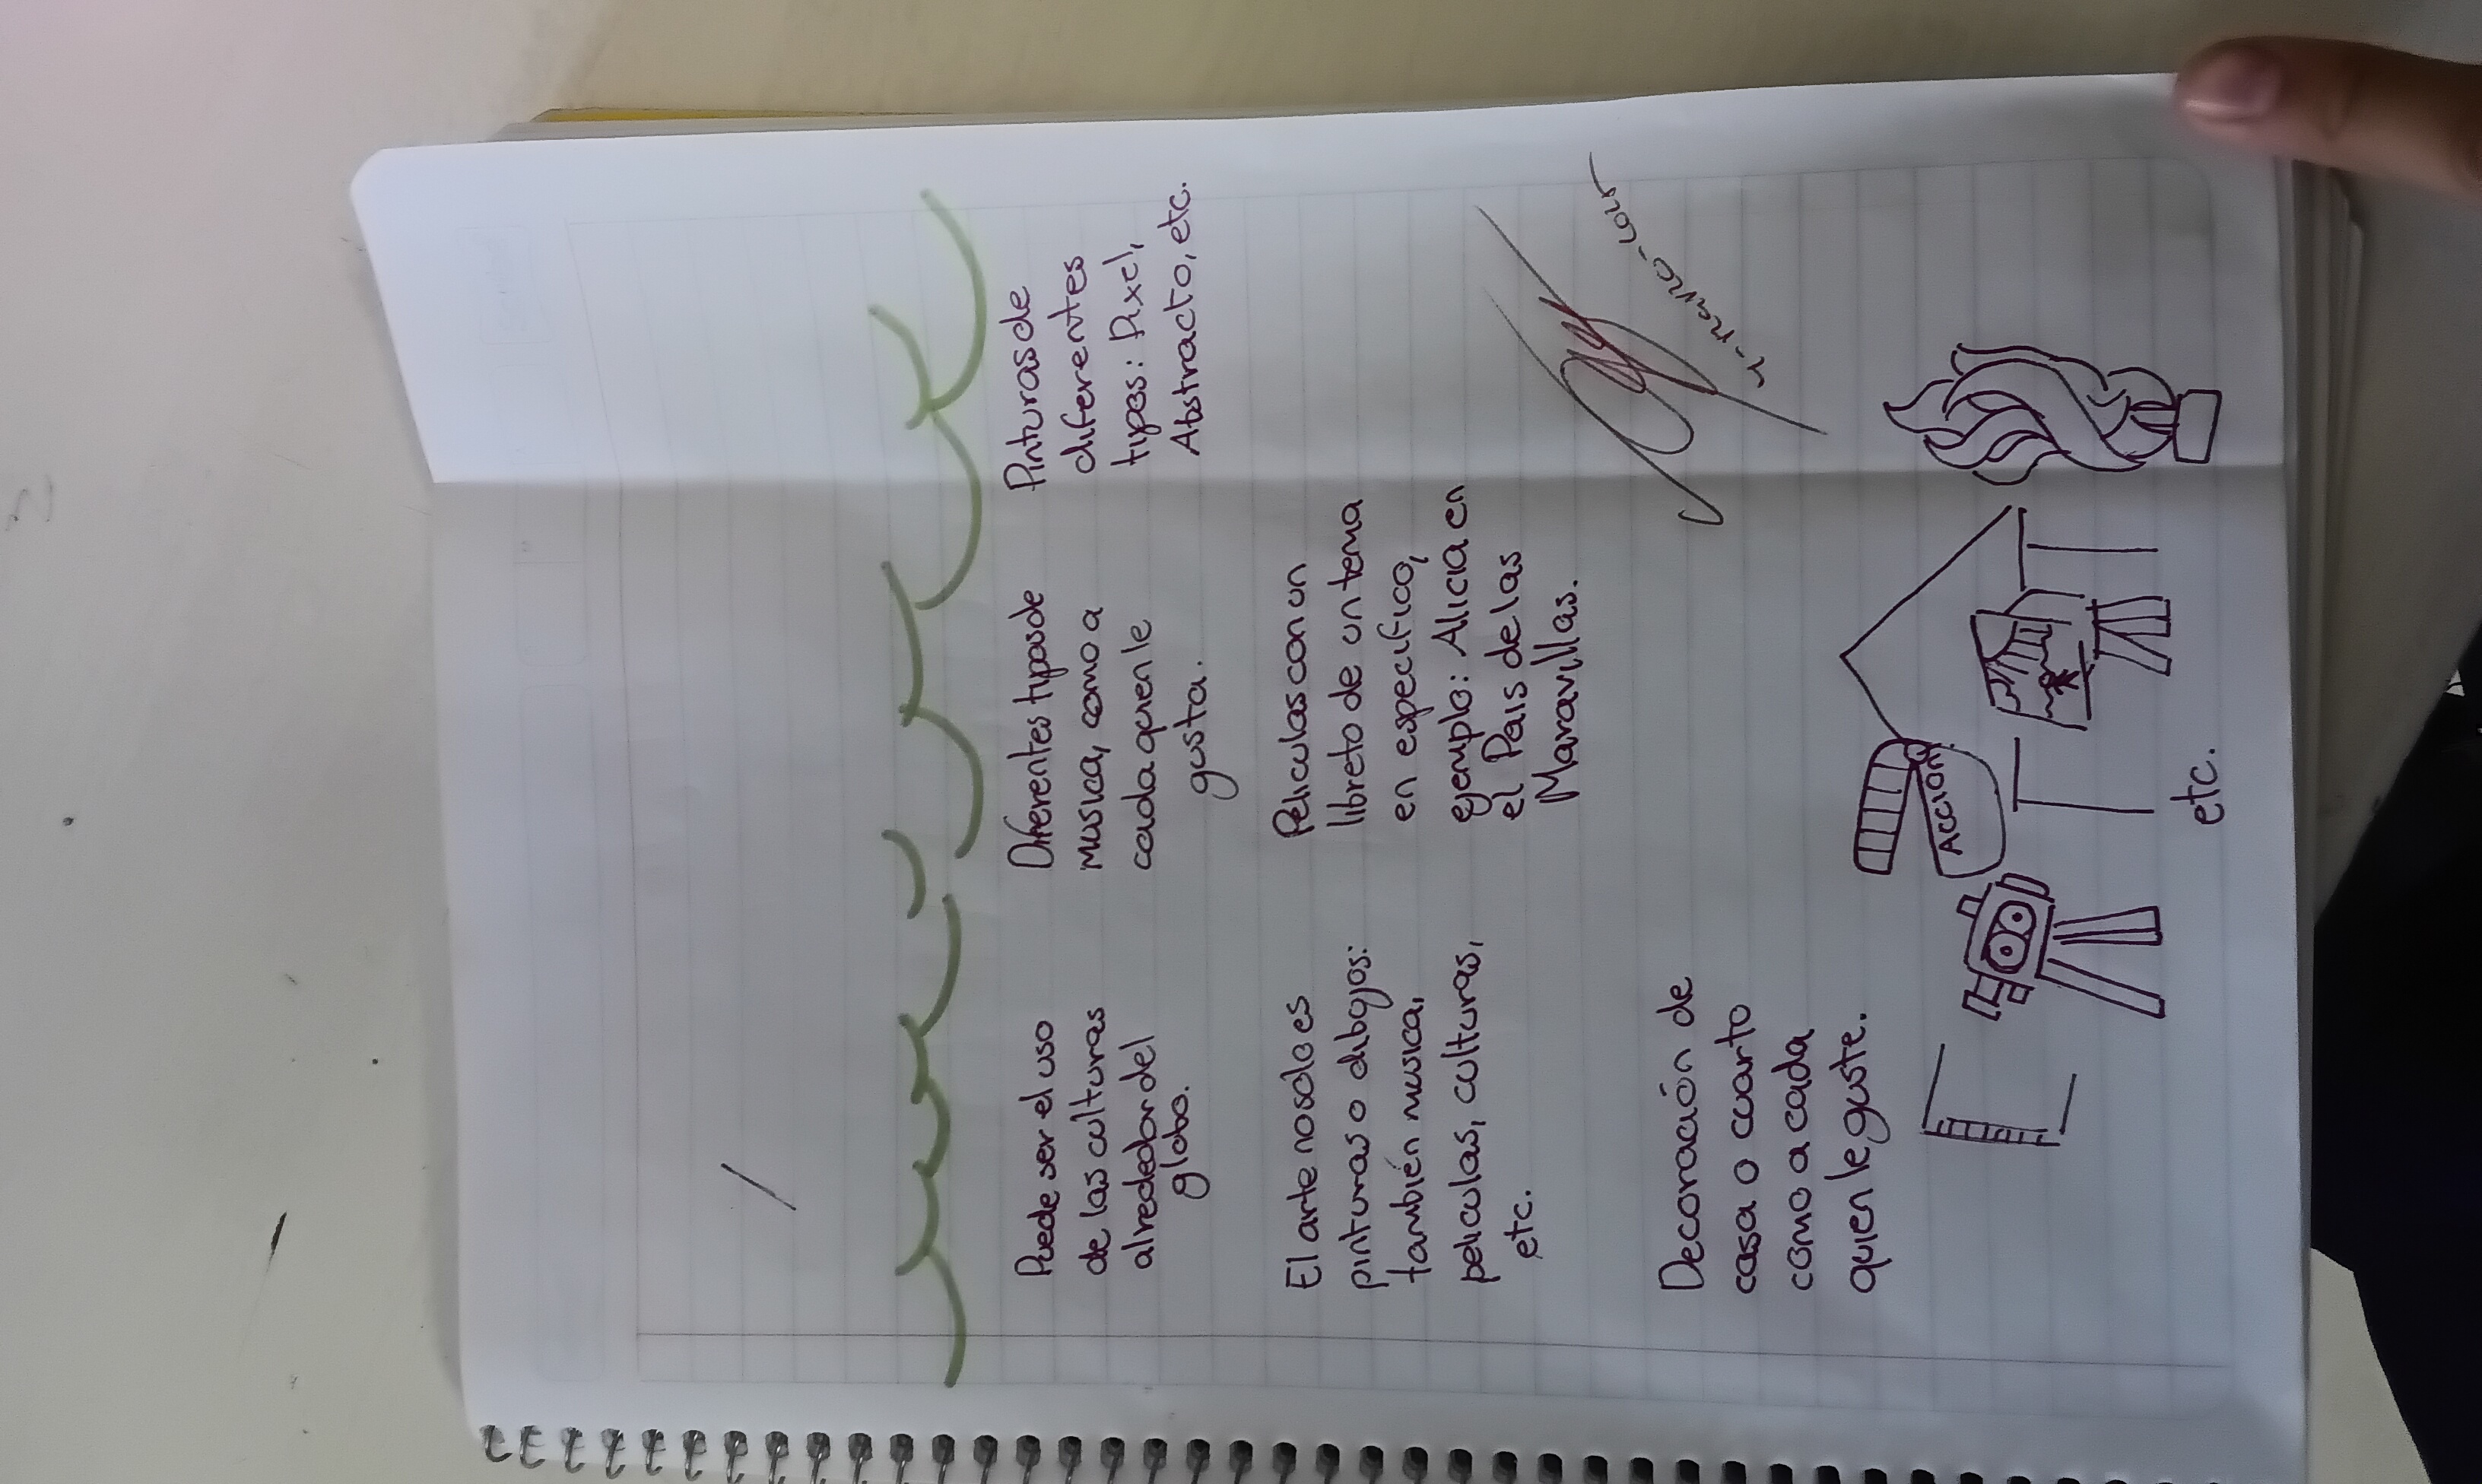 Puede ser el uso
de las culturas
alrededor del
globo.
Diferentes tipos de
musica, como a
cada quien le
gusta.
Pinturas de
diferentes
tipos: Pixel,
Abstracto, etc.
El arte no solo es
pinturas o dibujos:
también musica,
peliculas, culturas,
etc.
Peliculas con un
libreto de un tema
en especifico,
ejemplo: Alicia en
el Pais de las
Maravillas.
Decoración de
casa o cuarto
como a cada
quien le guste.
Acción
etc.